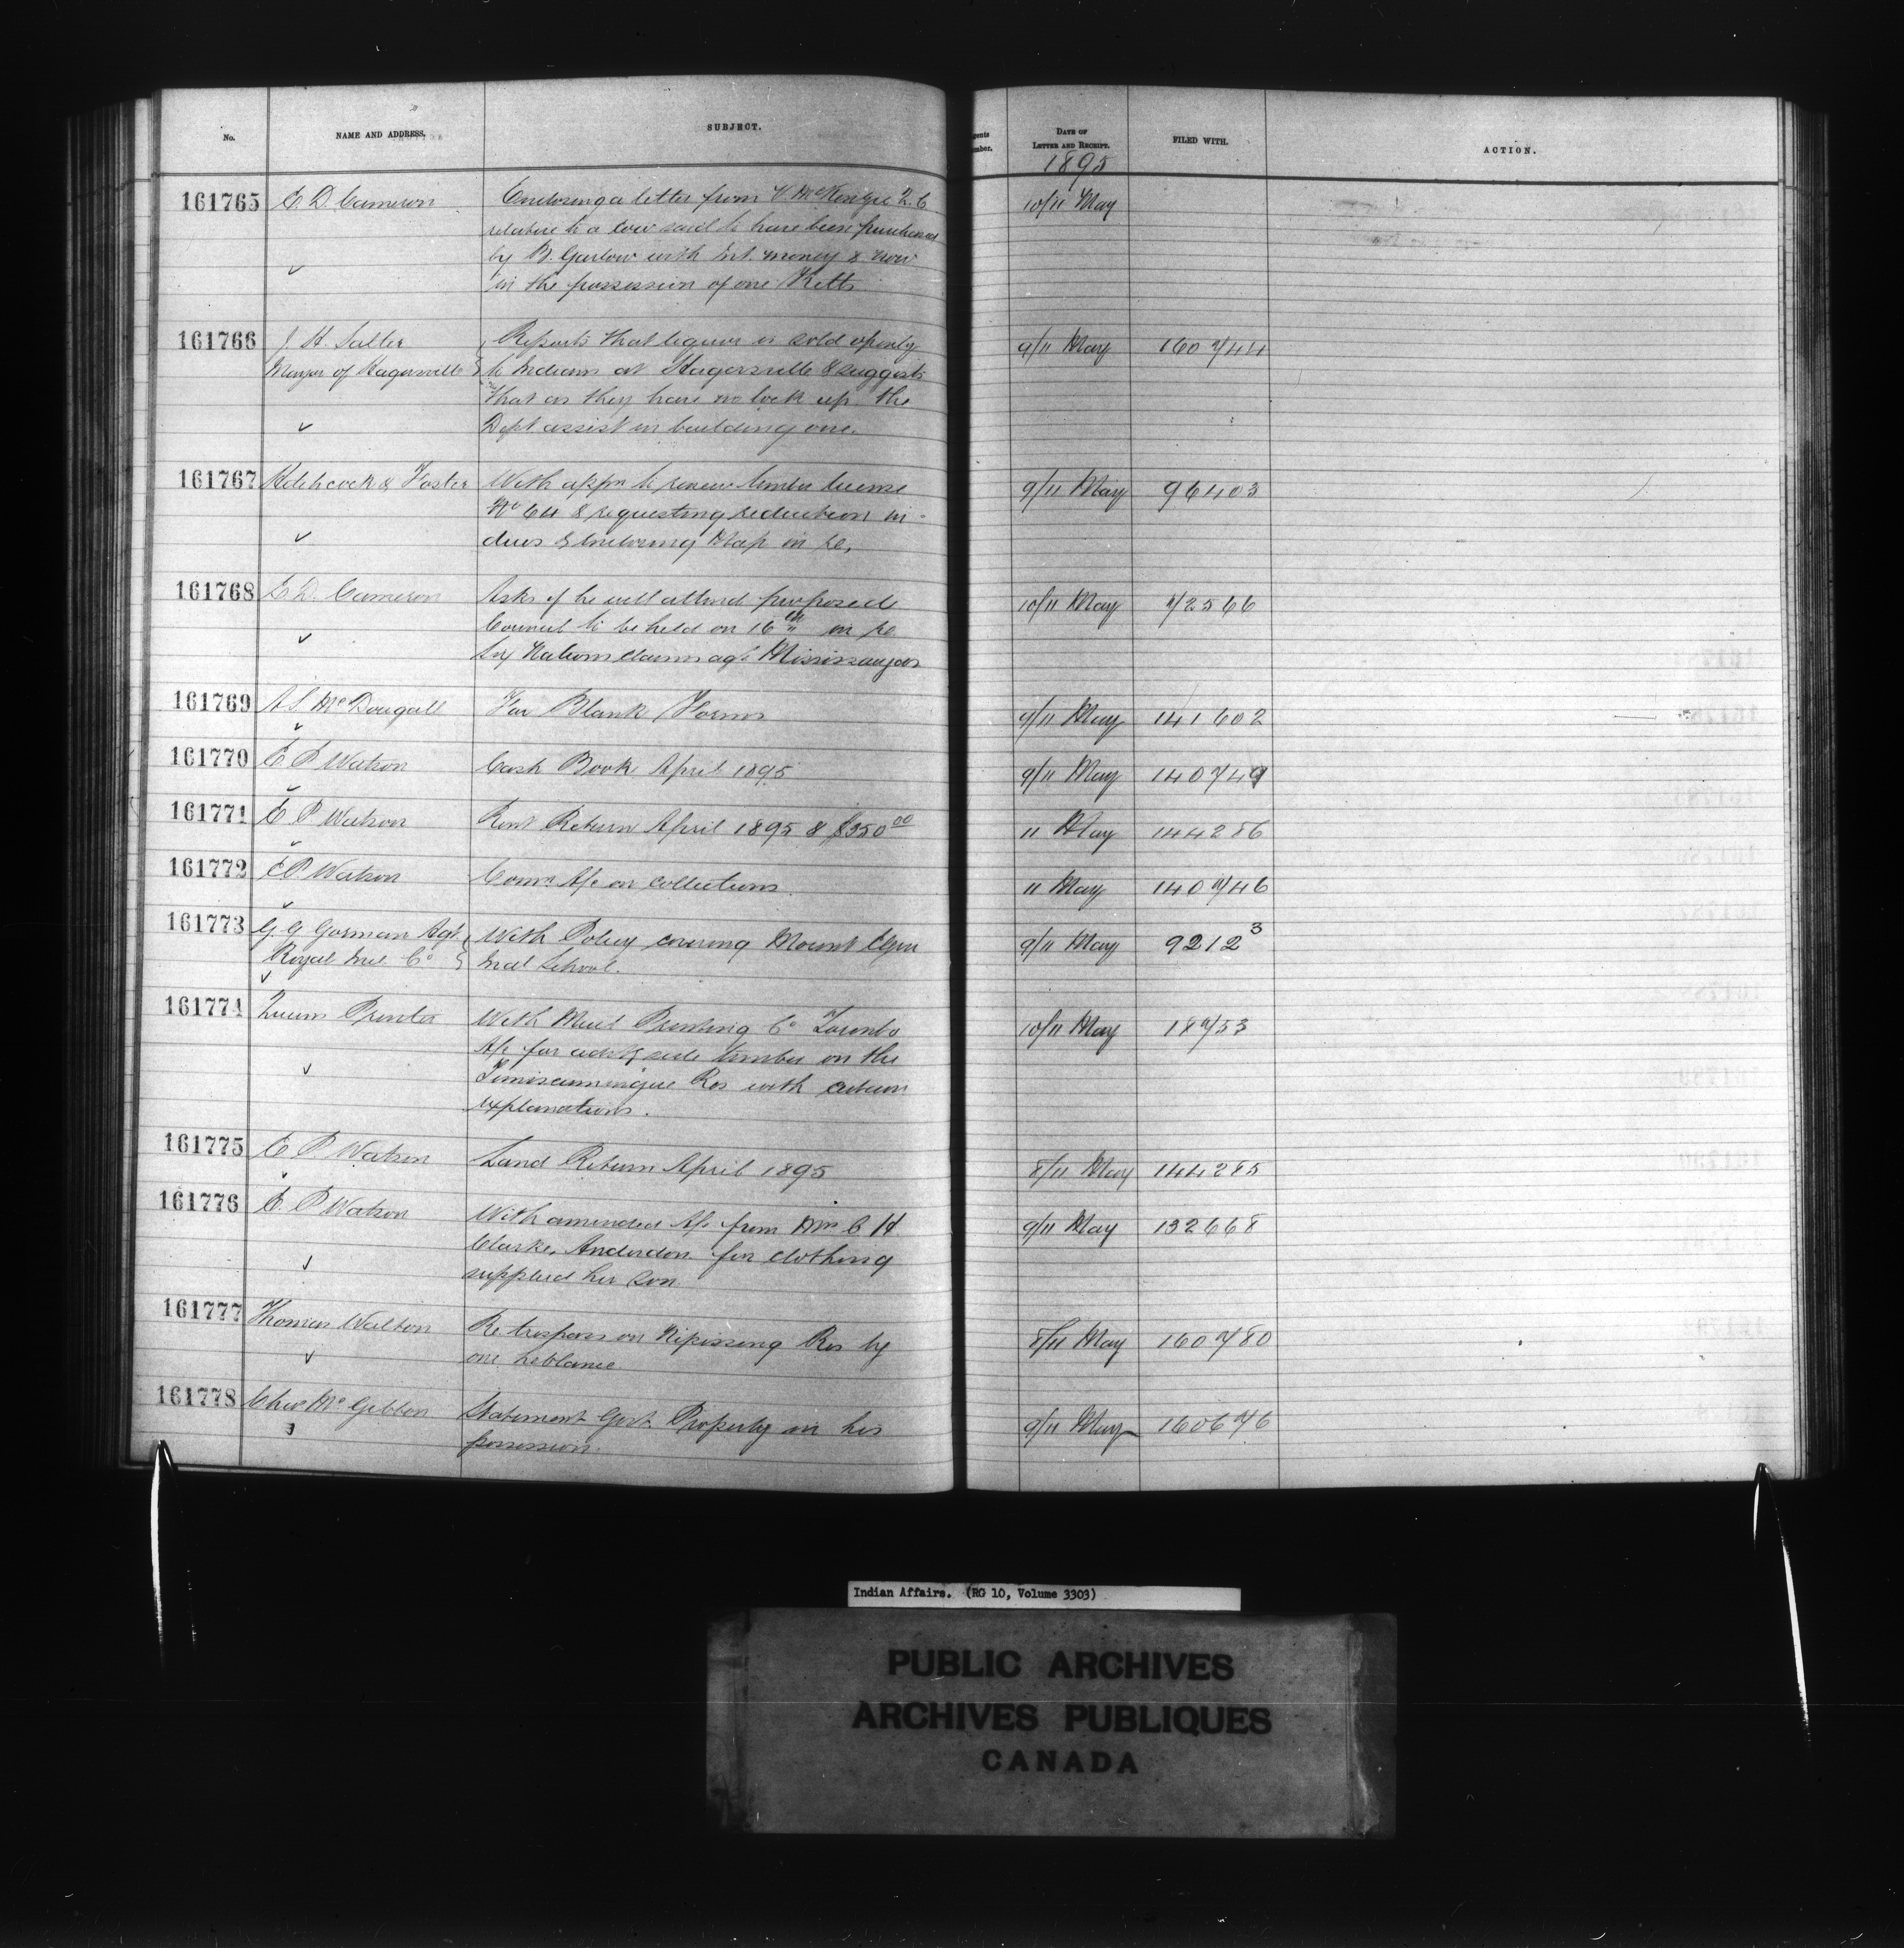 No.
NAME AND ADDRESS.
SUBJECT.
DATE OF
LETTER AND RECEIPT.
FILED WITH.
ACTION.
1895
161765 E. D. Cameron Enclosing a letter from V. McKenzie Q.C 10/11 May
relative to a cow said to have been purchased
by B. Garlow with Int. money & now
in the possession of one Ketts
161766 J. H. Salter Reports that liquor is sold openly 9/11 May 160744
Mayor of Hagersville to Indians at Hagersville & suggests
that as they have no lock up the
Dept assist in building one.
161767 Hitchcock & Foster With appn to renew timber license 9/11 May 96403
No 64 & requesting reduction in
dues & enclosing Map in re.
161768 E. D. Cameron Asks if he will attend proposed 10/11 May 72566
Council to be held on 16th in re
Six Nations claim agt Mississaugas
161769 A S McDougall For Blank Forms 9/11 May 141602
161770 E. P Watson Cash Book April 1895 9/11 May 140749
161771 E P Watson Rent Return April 1895 & $350 00 11 May 144286
161772 E P Watson Comn A/c on collections 11 May 140746
161773 G G Gorman Agt With Policy covering Mount Elgin 9/11 May 92123
Royal Ins Co Indl School.
161774 Queens Printer With Mail Printing Co Toronto 10/11 May 18753
A/c for advtg sale timber on the
Temiscamingue Res with certain
explanations.
161775 E P Watson Land Return April 1895 8/11 May 144285
161776 E. P Watson With amended A/c from Mrs C H 9/11 May 132668
Clarke, Anderdon for clothing
supplied her son
161777 Thomas Walton Re trespass on Nipissing Res by 8/11 May 160780
one Leblanc
161778 Chas McGibbon Statement Govt. Property in his 9/11 May 160676
possession.
Indian Affairs. (RG 10, Volume 3303)
PUBLIC ARCHIVES
ARCHIVES PUBLIQUES
CANADA